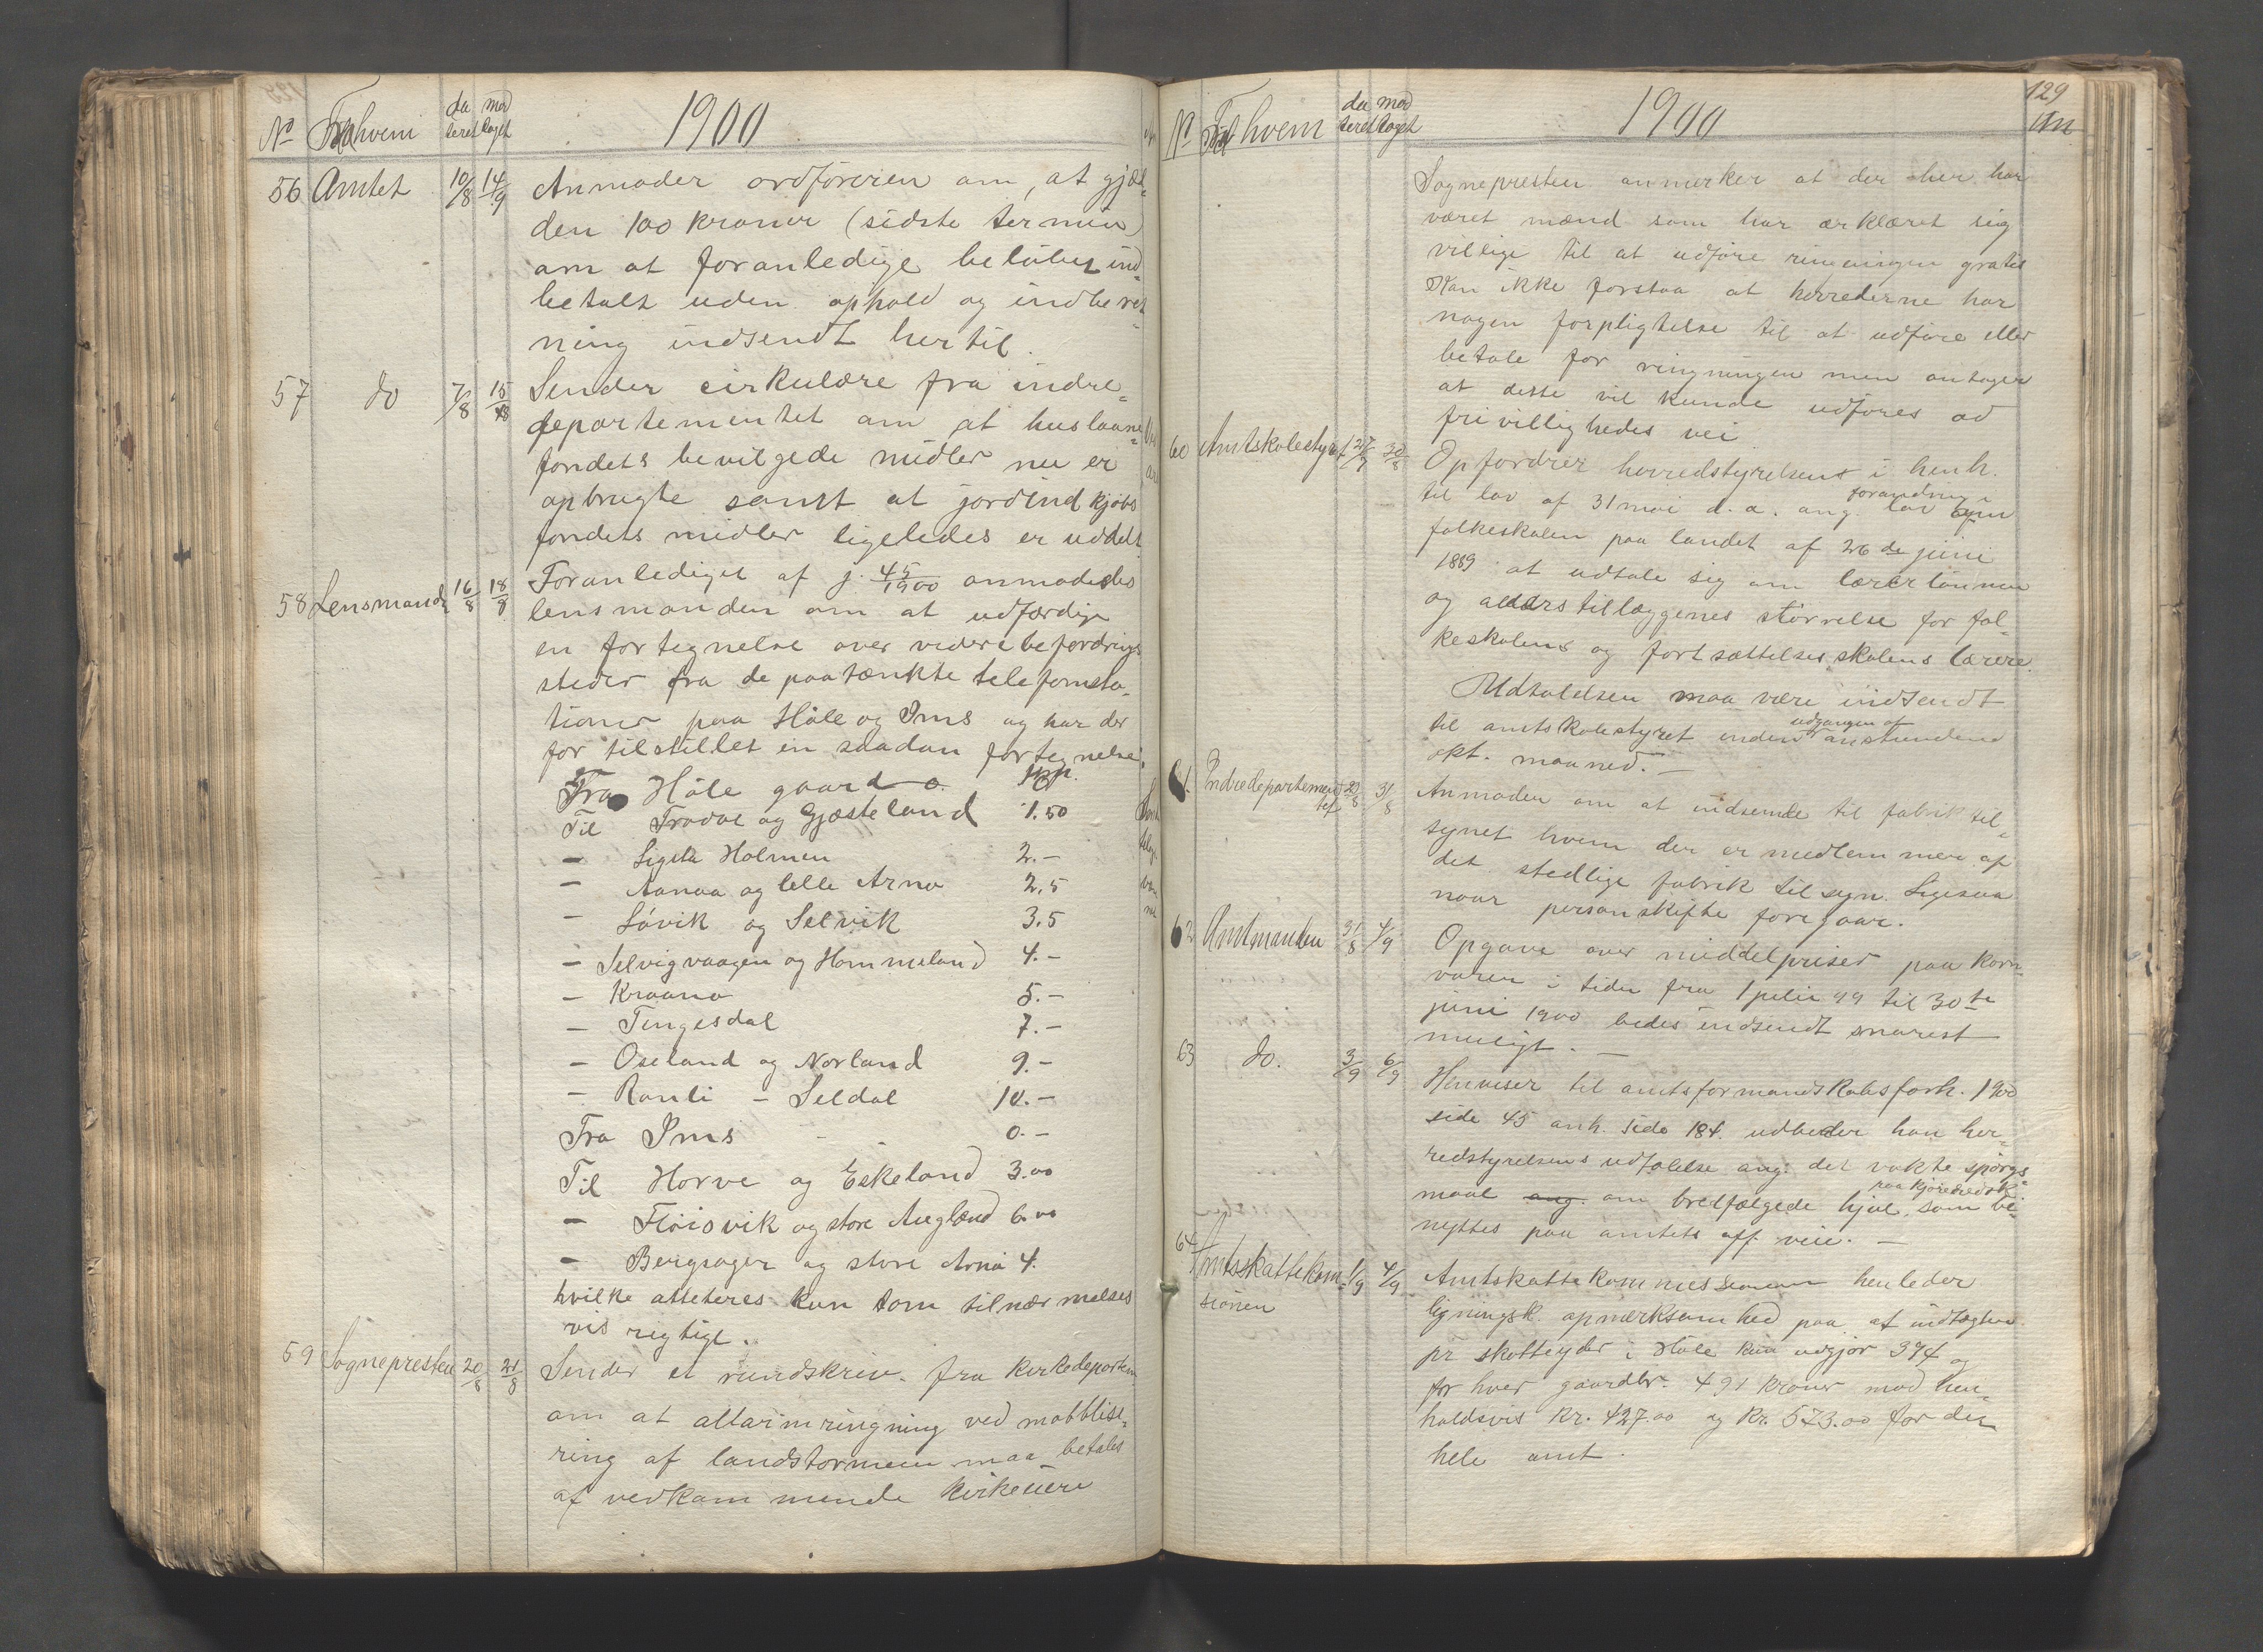 1900
No Fra hvem da teret mod taget
56 Amtet 10/8 14/9 Anmoder ordføreren om, at gjæl=
den 100 kroner (sidste termin)
om at foranledige beløbet ind=
betalt uden ophold og indberet=
ning indsendt hertil.
57 do 7/8 15/8 Sender cirkulære fra indre=
departementet om at huslaane=
fondets bevilgede midler nu er
opbrugte samt at jordindkjøbs
fondets midler ligeledes er uddelt.
58 Lensmand 16/8 18/8 Foranlediget af j. 45/1900 anmodedes
lensmanden om at udfærdige
en fortegnelse over viderebefordrings
steder fra de paatænkte telefonsta=
tioner paa Høle og Ims og har der
for tilstillet en saadan fortegnelse.
Fra Høle gaard o.
Til Tradal og Gjæsteland 1.50
— Holmen 2.—
— Aanaa og lelle Arna 2,5
— Løvik og Selvik 3.5
— Selvigvaagen og Hommeland 4.—
— Kraana 5.—
— Tengesdal 7.—
— Oseland og Norland 9.—
— Ranli — Seldal 10.—
Fra Ims 0.—
Til Horve og Eskeland 3.00
— Fløisvik og store Auglænd 6.00
— Bergsager og store Arna 4.
hvilke atteteres kun som tilnærmelses
vis rigtige.
59 Sognepresten 20/8 21/8 Sender et rundskriv. fra kirkedepartem.
om at allarmringning ved mobblise=
ring af landstormen maa betales
af vedkommende kirkeiere
129
1900
No Fra hvem da teret mod taget An
Sognepresten anmerker at der her har
været mænd som har erklæret sig
villige til at udføre ringningen gratis
Kan ikke forstaa at herrederne har
nogen forpligtelse til at udføre eller
betale for ringningen men antager
at dette vil kunde udføres ad
frivillighedes vei
60 Amtskolestyret 27/7 30/8 Opfordrer herredstyrelsens i henh.
til lov af 31 mai d. a. ang. forandring i lov om
folkeskolen paa landet af 26de juni
1889 at udtale sig om lærerlønnen
og alderstillæggenes størrelse for fol=
keskolens og fortsættelsesskolens lærere.
Udtalelsen maa være indsendt
til amtskolestyret inden udgangen af anstundende
okt. maaned.—
61. Indredepartementet 20/8 31/8 Anmoder om at indsende til fabriktil=
synet hvem der er medlemmer af
det stedlige fabriktilsyn. Ligesaa
naar personskifte foregaar.
62 Amtmanden 31/8 4/9 Opgave over middelpriser paa korn=
varer i tiden fra 1 juli 99 til 30te
juni 1900 bedes indsendt snarest
muligt. —
63 do. 3/9 6/9 Henviser til amtsformandskabsforh. 1900
side 45 anh. side 184. udbeder han her=
redstyrelsens udtalelse ang. det vakte spørgs=
maal ang. om bredfælgede hjul paa kjøreredsk. som be=
nyttes paa amtets off. veie. —
64 Amtsskattekom=sionen 1/9 4/9 Amtskattekommissionen henleder
ligningsk. opmerksomhed paa at indtægten
pr skatteyder i Høle kun udgjør 374 og
for hver gaardbr. 491 kroner mod hen=
holdsvis kr. 427.00 og kr. 573.00 for det
hele amt.